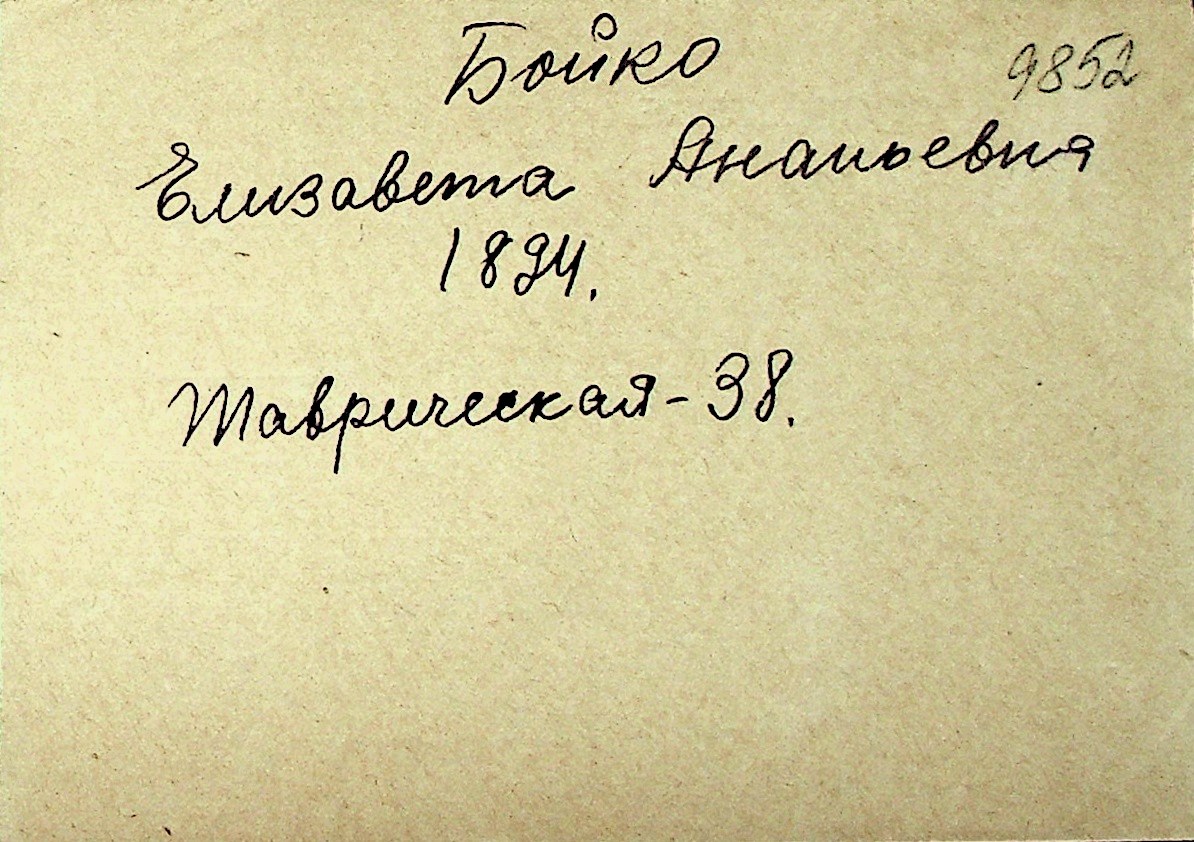 Бойко
9852
Елизавета Ананьевна
1894.
Таврическая-38.